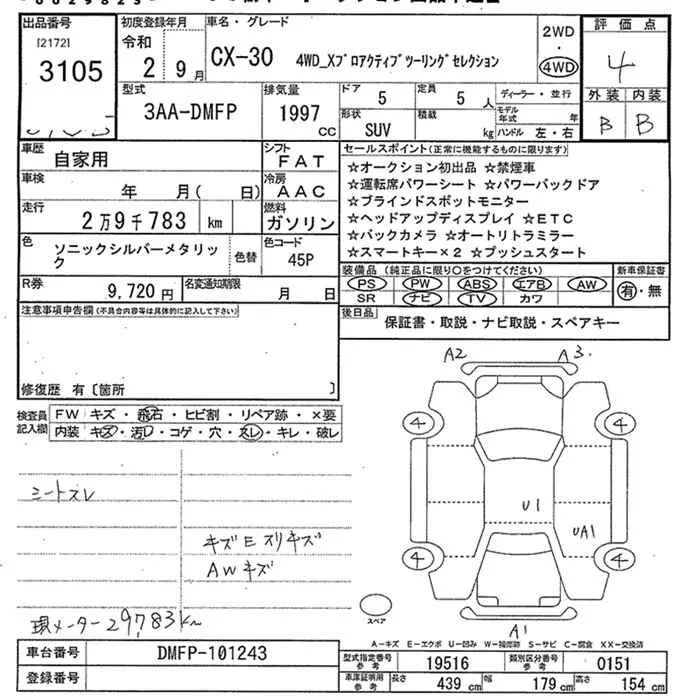 出品番号
[2172]
3105
初度登録年月
令和
2 9月
車名・グレード
CX-30 4WD_Xプロアクティブツーリングセレクション
2WD
・
4WD
評価点
4
外装 内装
B B
型式
3AA-DMFP
排気量
1997 CC
ドア 5
定員 5人
形状 SUV
積載 kg
ディーラー・並行
モデル年式 年
ハンドル 左・右
車歴 自家用
シフト FAT
車検 年 月( 日)
冷房 AAC
走行 2万9千783 km
燃料 ガソリン
色 ソニックシルバーメタリック
色替
色コード 45P
R券 9,720円
名変通知期限 月 日
セールスポイント(正常に機能するものに限ります)
☆オークション初出品 ☆禁煙車
☆運転席パワーシート ☆パワーバックドア
☆ブラインドスポットモニター
☆ヘッドアップディスプレイ ☆ETC
☆バックカメラ ☆オートリトラミラー
☆スマートキー×2 ☆プッシュスタート
装備品(純正品に限り○をつけてください)
PS PW ABS エアB AW
SR ナビ TV カワ
新車保証書
有・無
後日品 保証書・取説・ナビ取説・スペアキー
注意事項申告欄(不具合内容等は具体的に記入して下さい)
修復歴 有〔箇所 〕
検査員記入欄
FW キズ・飛石・ヒビ割・リペア跡・×要
内装 キズ・汚レ・コゲ・穴・スレ・キレ・破レ
シートスレ
キズE スリキズ
AWキズ
現メーター29,783km
A2 A3
4 4
U1
UA1
4 4
A1
スペア
A-キズ E-エクボ U-凹み W-補修跡 S-サビ C-腐食 XX-交換済
車台番号 DMFP-101243
登録番号
型式指定番号 参考 19516
類別区分番号 参考 0151
車庫証明用 参考 長さ 439 cm 幅 179 cm 高さ 154 cm